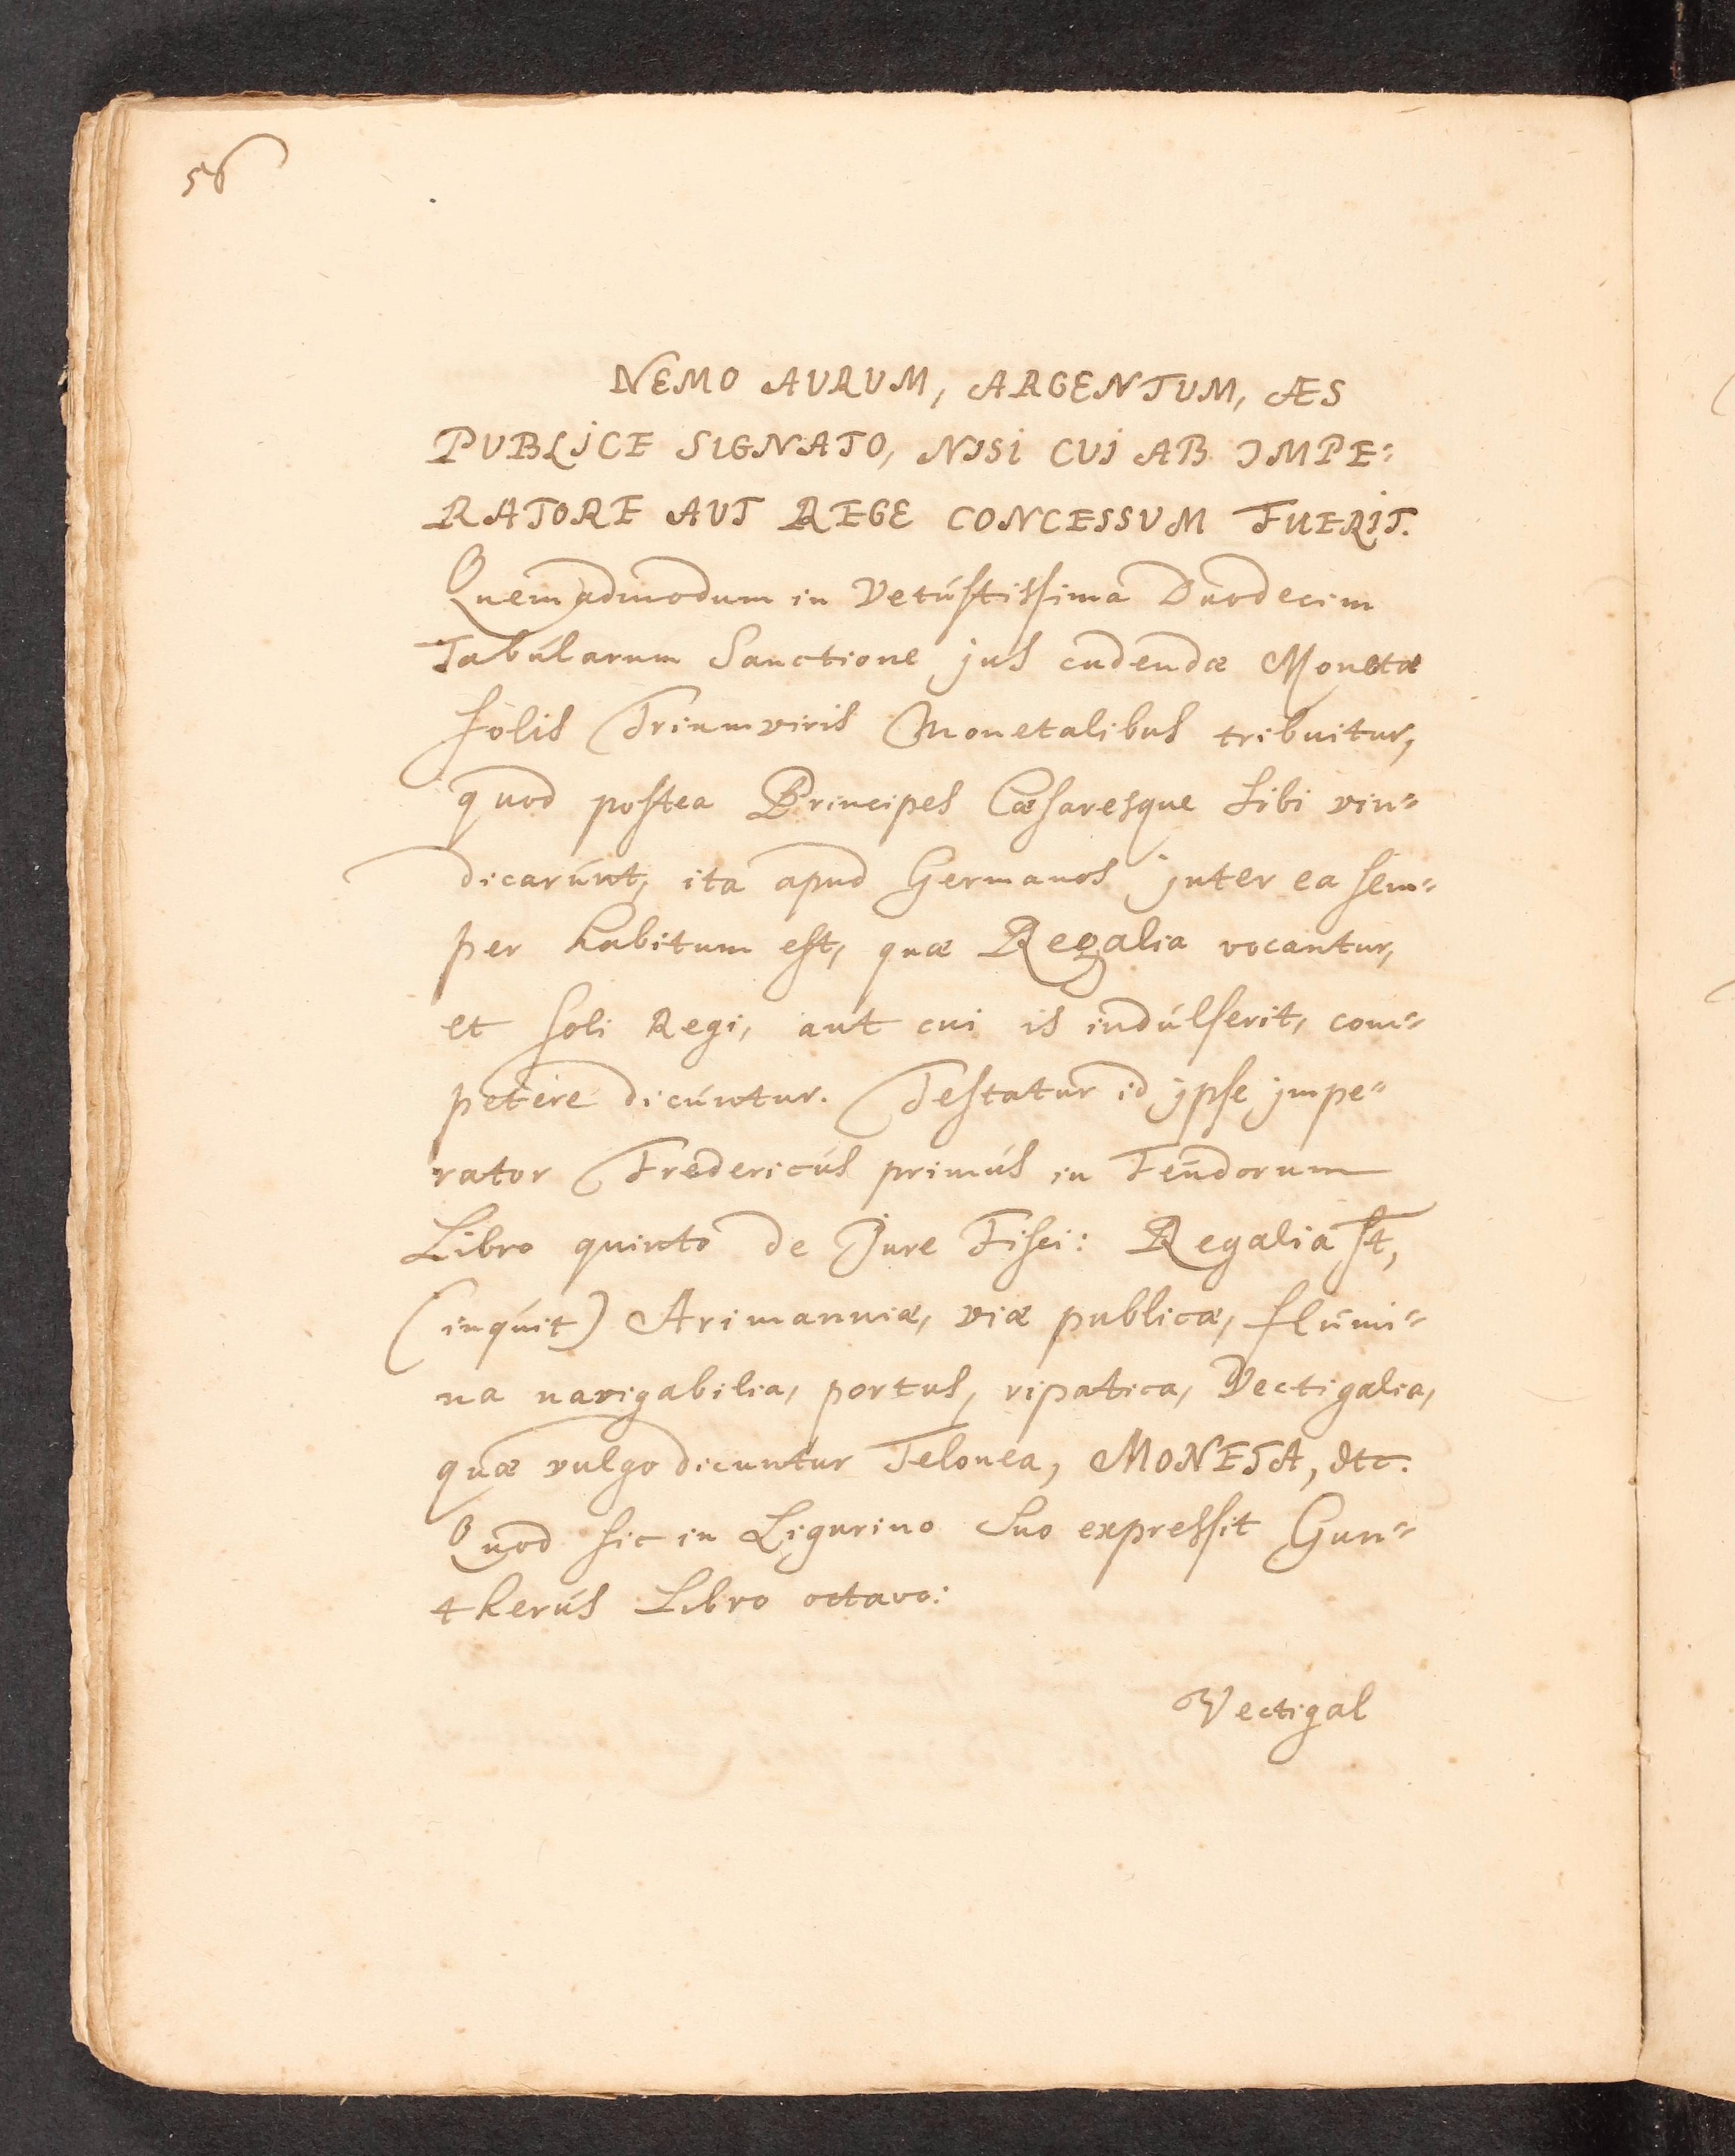 56
NEMO AURUM, ARGENTUM, ÆS
PUBLICE SIGNATO, NISI CUI AB IMPE⸗
RATORE AUT REGE CONCESSVM FUERIT.
Quemadmodum in Vetústissima Duodecim
Tabúlarum Sanctione jus cudendæ Monetæ
solis Triumviris Monetalibus tribuitur,
quod postea Principes Cæsaresque sibi vin⸗
dicarúnt, ita apud Germanos jnter ea sem⸗
per habitum est, quæ Regalia vocantur,
et soli Regi, aút cui is indúlserit, com⸗
petere dicúntur. Testatur id jpse jmpe⸗
rator Fredericús primús in Feúdorum
Libro quinto de Jure Fisci: Regalia st,
(inqúit) Arimanniæ, viæ publicæ, flúmi⸗
na navigabilia, portus, ripatica, Vectigalia,
quæ vulgo dicuntur Telonea, MONETA, &tc.
Quod sic in Ligurino suo expressit Gun⸗
therús Libro octavo:
Vectigal